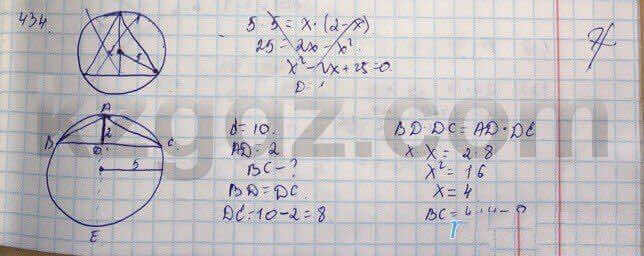 434.
5·5 = x·(2-x)
25 - 2x - x²
x² - 2x + 25 = 0
D
A
2
B
D
C
5
E
d = 10.
AD = 2
BC - ?
BD = DC.
DE = 10 - 2 = 8
BD·DC = AD·DE
x·x = 2·8
x² = 16
x = 4
BC =
kzgdz.com